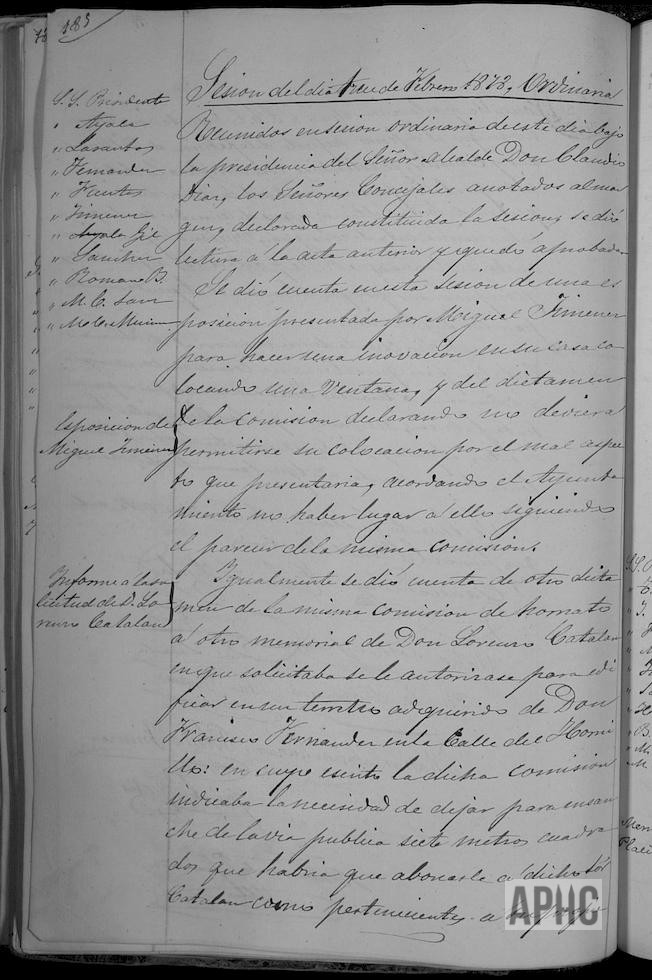 183
Sesion del dia trece de Febrero 1873, Ordinaria
S. S. Presidente
" Ayala
" Lasantas
" Fernandez
" Fuentes
" Jimenez
" Gil
" Sanchez
" Romano B.
" M. C. Sanz
" M. C.
Reunidos en sesion ordinaria de este dia bajo
la presidencia del Señor Alcalde Don Claudio
Diaz, los Señores Concejales anotados al mar
gen, declarada constituida la sesion, se dió
lectura á la acta anterior y quedó aprobada
Se dió cuenta en esta sesion de una es
posicion presentada por Miguel Jimenez
para hacer una inovacion en su casa co
locando una ventana, y del dictamen
Esposicion de
Miguel Jimenez
de la comision declarando no deviera
permitirse su colocacion por el mal aspec
to que presentaria, acordando el Ayunta
miento no haber lugar á ello siguiendo
el parecer de la misma comision.
Informe a la so
licitud de D. Lo
renzo Catalan
Igualmente se dió cuenta de otro dicta
men de la misma comision de hornato
á otro memorial de Don Lorenzo Catalan
en que solicitaba se le autorizase para edi
ficar en un terreno adquirido de Don
Francisco Fernandez en la Calle del Horni
llo: en cuyo escrito la dicha comision
indicaba la necesidad de dejar para ensan
che de la via publica siete metros cuadra
dos que habria que abonarle a dicho Sór
Catalan como pertenecientes a su propie
APHC